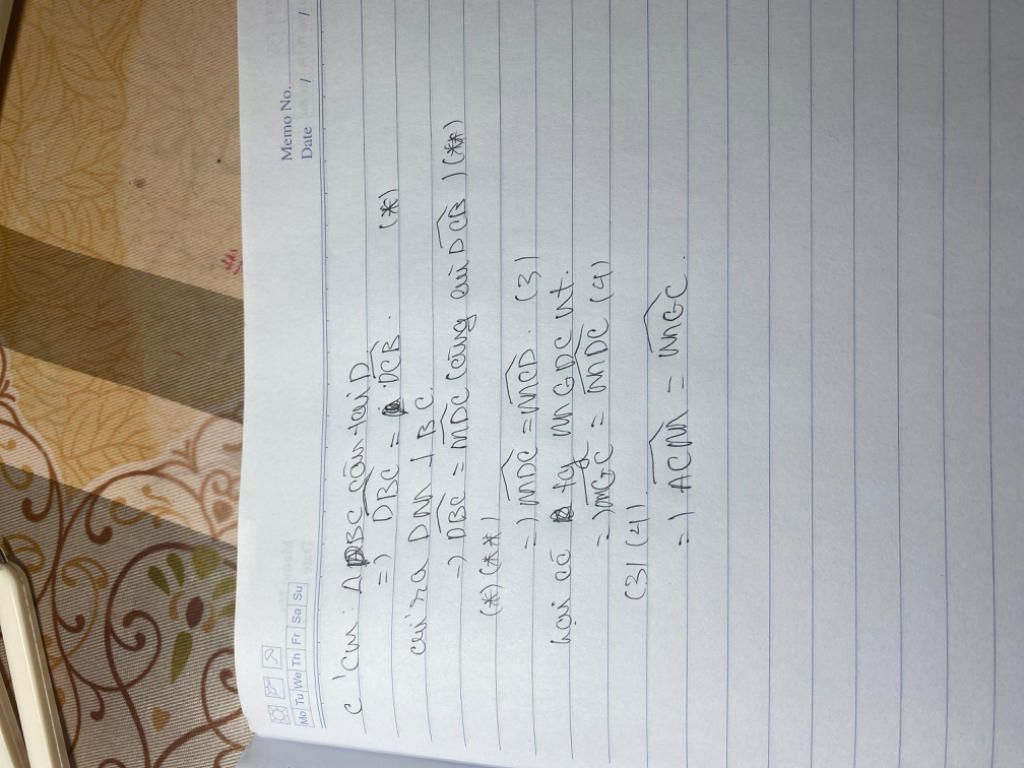 Memo No.
Date / /
Mo Tu We Th Fr Sa Su
c) cm: ΔDBC cân tại D
=) \widehat{DBC} = \widehat{DCB}. (*)
DM ⊥ BC
=) \widehat{DBC} = \widehat{MDC} (cùng \widehat{DCB}) (**)
(*)(**)
=) \widehat{MDC} = \widehat{MCD}. (3)
Lại có tg MGDC nt.
=) \widehat{MGC} = \widehat{MDC} (4)
(3)(4)
=) \widehat{ACM} = \widehat{MGC}.